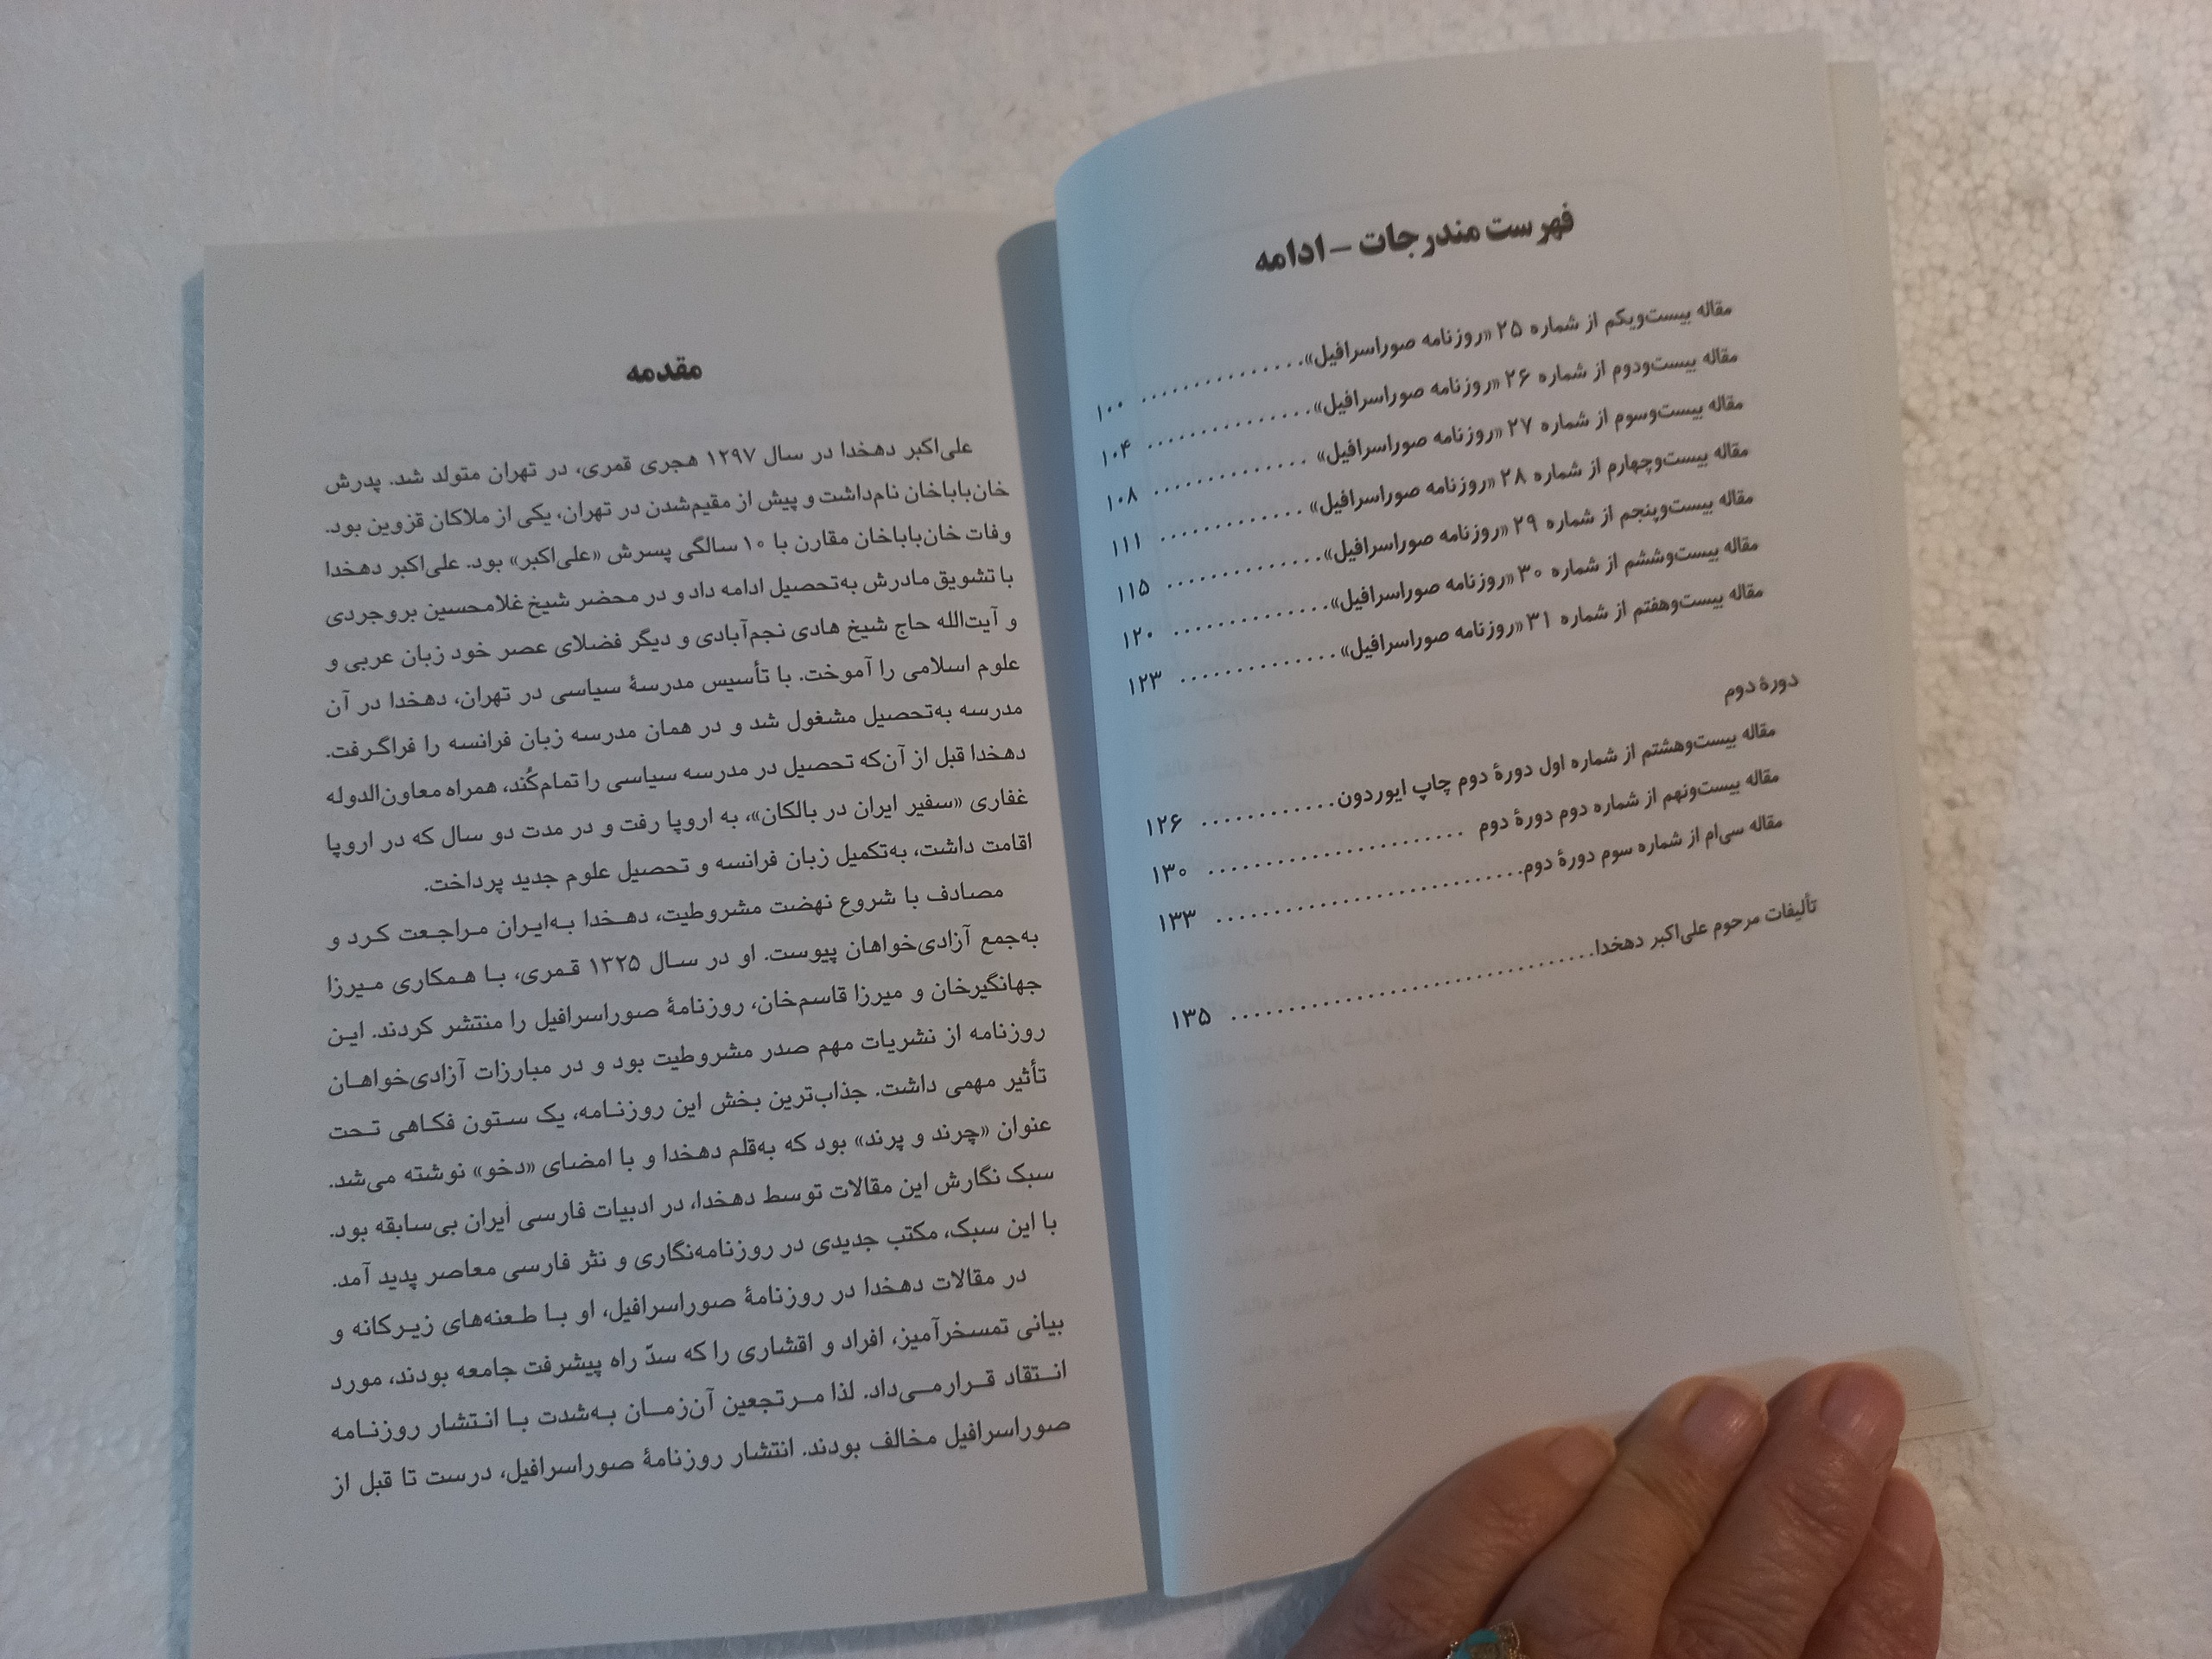 فهرست مندرجات – ادامه
مقاله بیست‌ویکم از شماره ۲۵ «روزنامه صوراسرافیل».............. ۱۰۰
مقاله بیست‌ودوم از شماره ۲۶ «روزنامه صوراسرافیل».............. ۱۰۴
مقاله بیست‌وسوم از شماره ۲۷ «روزنامه صوراسرافیل» ............. ۱۰۸
مقاله بیست‌وچهارم از شماره ۲۸ «روزنامه صوراسرافیل» ............ ۱۱۱
مقاله بیست‌وپنجم از شماره ۲۹ «روزنامه صوراسرافیل».............. ۱۱۵
مقاله بیست‌وششم از شماره ۳۰ «روزنامه صوراسرافیل».............. ۱۲۰
مقاله بیست‌وهفتم از شماره ۳۱ «روزنامه صوراسرافیل».............. ۱۲۳
دورهٔ دوم
مقاله بیست‌وهشتم از شماره اول دورهٔ دوم چاپ ایوردون............ ۱۲۶
مقاله بیست‌ونهم از شماره دوم دورهٔ دوم ....................... ۱۳۰
مقاله سی‌ام از شماره سوم دورهٔ دوم........................... ۱۳۳
تألیفات مرحوم علی‌اکبر دهخدا................................ ۱۳۵
مقدمه
علی‌اکبر دهخدا در سال ۱۲۹۷ هجری قمری، در تهران متولد شد. پدرش
خان‌باباخان نام‌داشت و پیش از مقیم‌شدن در تهران، یکی از ملاکان قزوین بود.
وفات خان‌باباخان مقارن با ۱۰ سالگی پسرش «علی‌اکبر» بود. علی‌اکبر دهخدا
با تشویق مادرش به‌تحصیل ادامه داد و در محضر شیخ غلامحسین بروجردی
و آیت‌الله حاج شیخ هادی نجم‌آبادی و دیگر فضلای عصر خود زبان عربی و
علوم اسلامی را آموخت. با تأسیس مدرسهٔ سیاسی در تهران، دهخدا در آن
مدرسه به‌تحصیل مشغول شد و در همان مدرسه زبان فرانسه را فراگرفت.
دهخدا قبل از آن‌که تحصیل در مدرسه سیاسی را تمام‌کُند، همراه معاون‌الدوله
غفاری «سفیر ایران در بالکان»، به اروپا رفت و در مدت دو سال که در اروپا
اقامت داشت، به‌تکمیل زبان فرانسه و تحصیل علوم جدید پرداخت.
مصادف با شروع نهضت مشروطیت، دهخدا به‌ایران مراجعت کرد و
به‌جمع آزادی‌خواهان پیوست. او در سال ۱۳۲۵ قمری، با همکاری میرزا
جهانگیرخان و میرزا قاسم‌خان، روزنامهٔ صوراسرافیل را منتشر کردند. این
روزنامه از نشریات مهم صدر مشروطیت بود و در مبارزات آزادی‌خواهان
تأثیر مهمی داشت. جذاب‌ترین بخش این روزنامه، یک ستون فکاهی تحت
عنوان «چرند و پرند» بود که به‌قلم دهخدا و با امضای «دخو» نوشته می‌شد.
سبک نگارش این مقالات توسط دهخدا، در ادبیات فارسی ایران بی‌سابقه بود.
با این سبک، مکتب جدیدی در روزنامه‌نگاری و نثر فارسی معاصر پدید آمد.
در مقالات دهخدا در روزنامهٔ صوراسرافیل، او با طعنه‌های زیرکانه و
بیانی تمسخرآمیز، افراد و اقشاری را که سدّ راه پیشرفت جامعه بودند، مورد
انتقاد قرارمی‌داد. لذا مرتجعین آن‌زمان به‌شدت با انتشار روزنامه
صوراسرافیل مخالف بودند. انتشار روزنامهٔ صوراسرافیل، درست تا قبل از